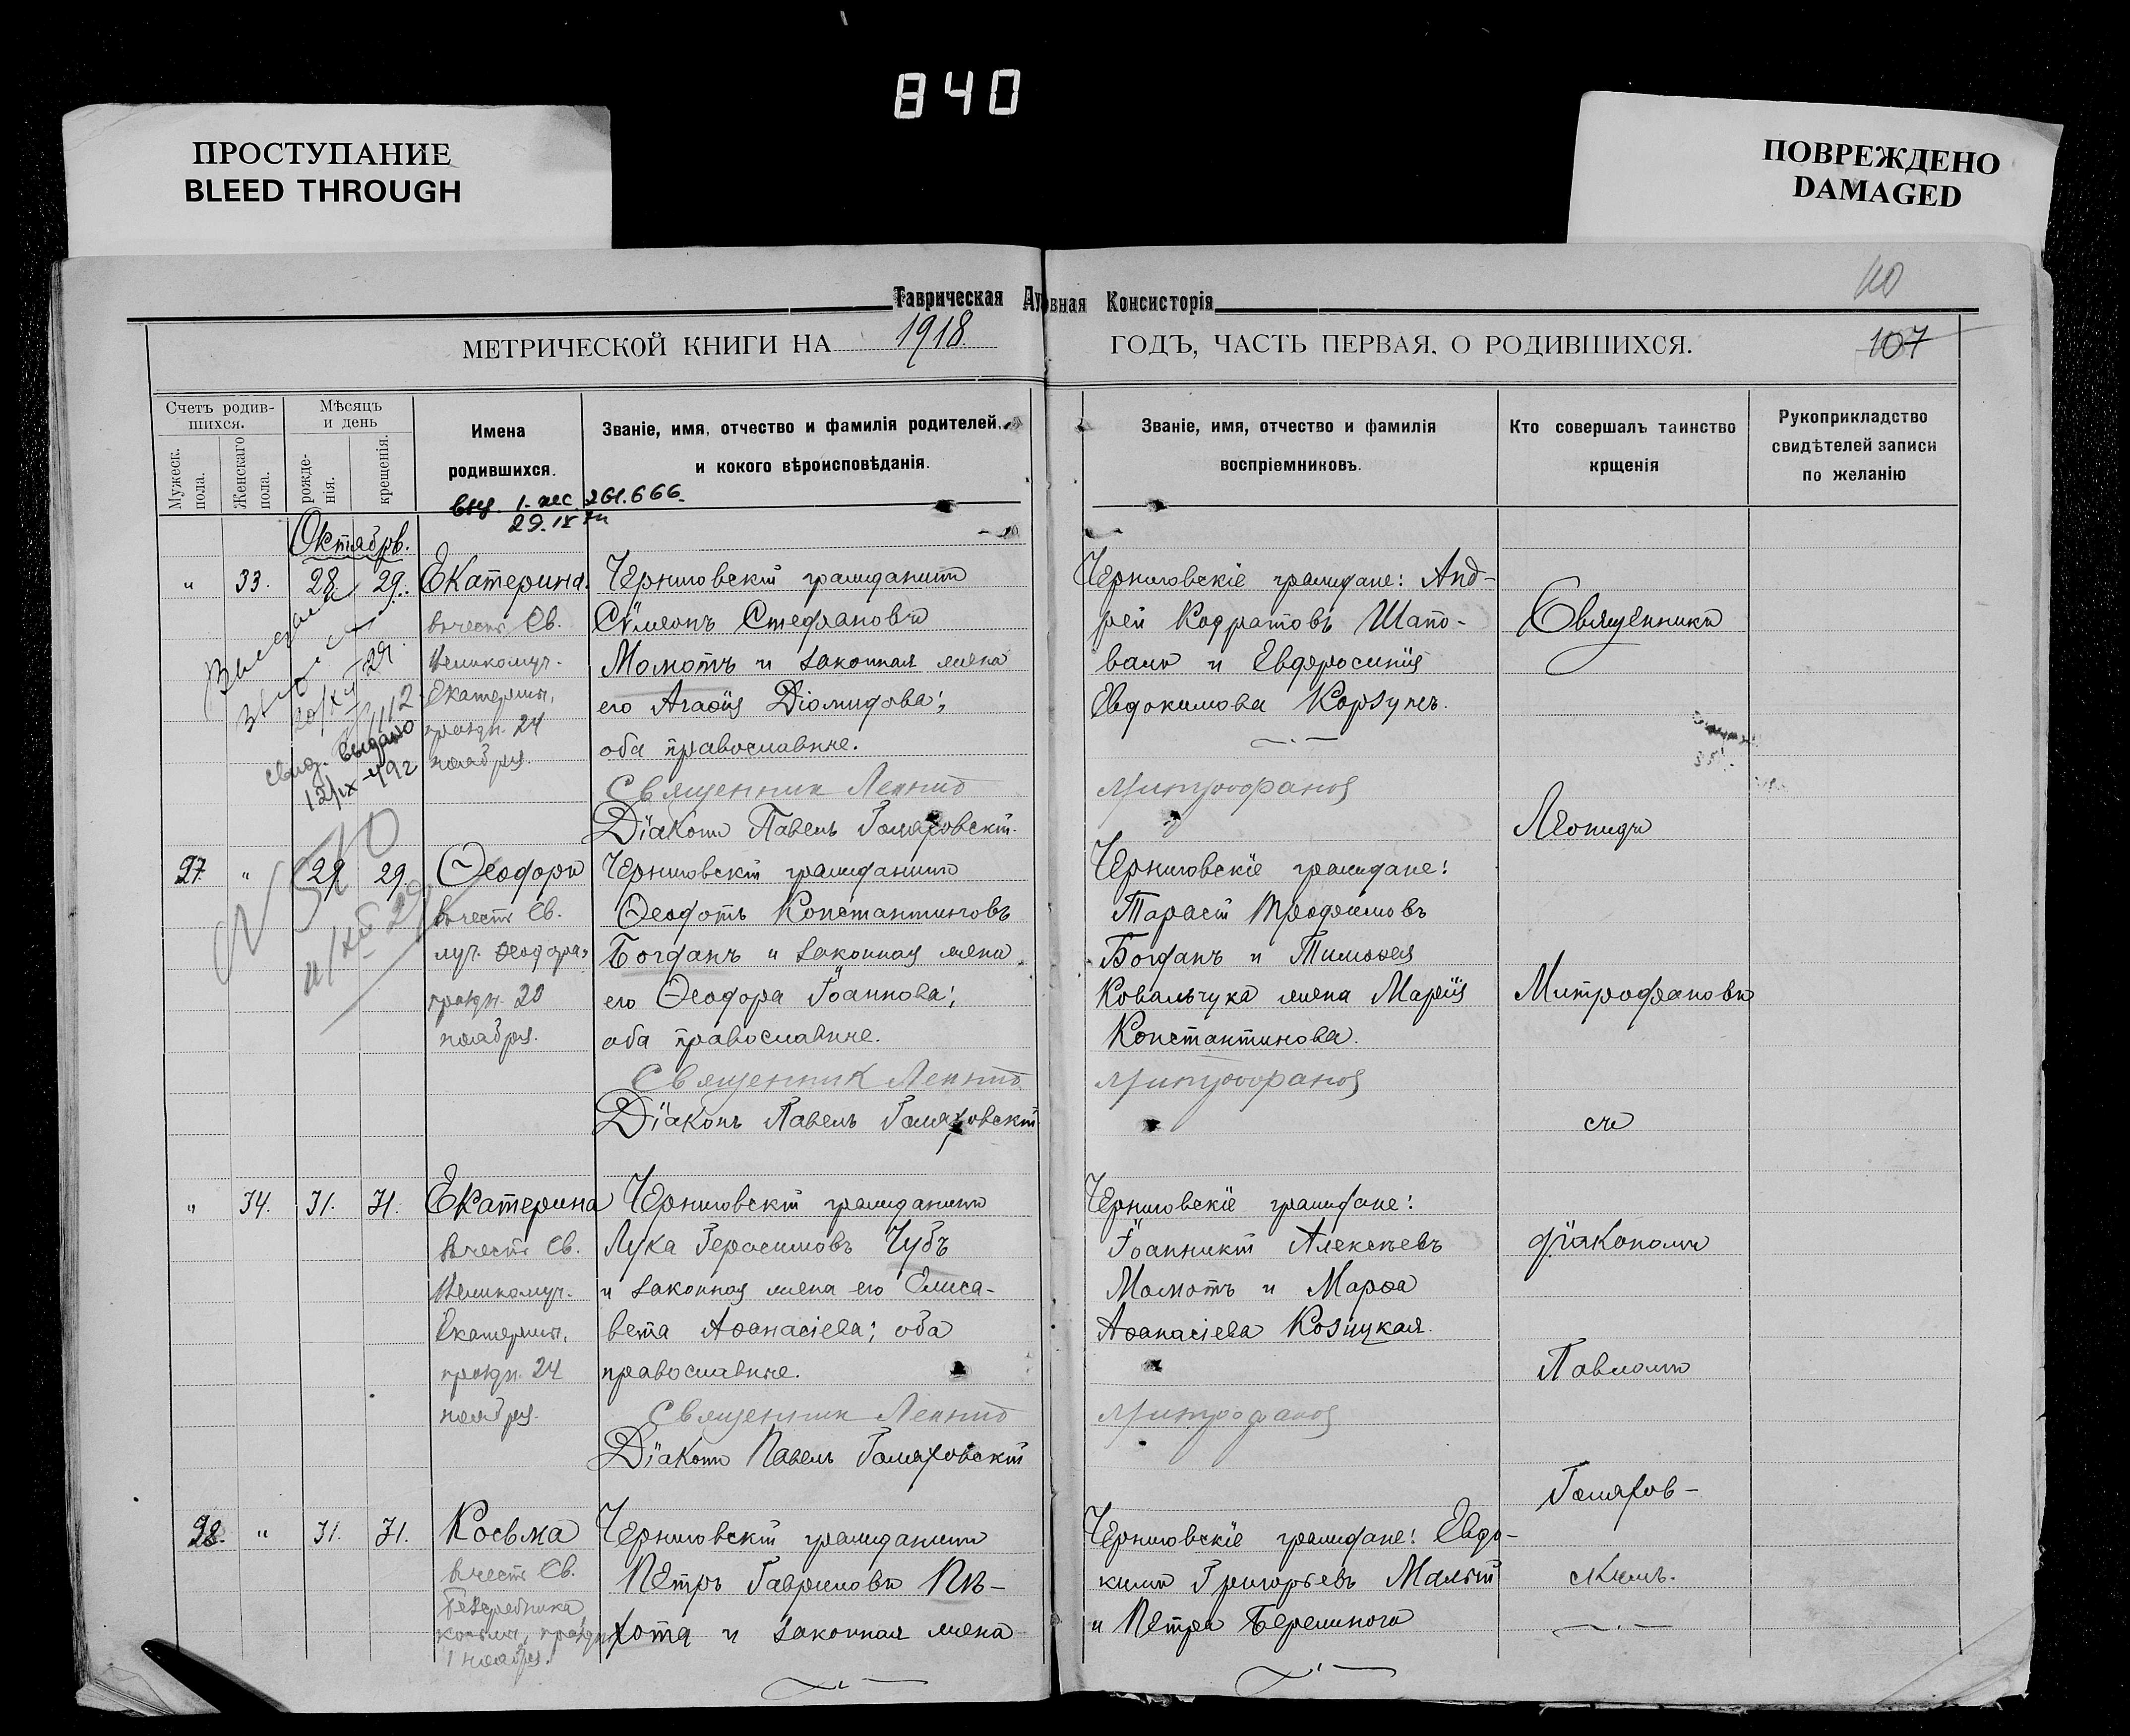 840
ПРОСТУПАНИЕ
BLEED THROUGH
ПОВРЕЖДЕНО
DAMAGED
110
Таврическая Духовная Консисторія
МЕТРИЧЕСКОЙ КНИГИ НА 1918 ГОДЪ, ЧАСТЬ ПЕРВАЯ, О РОДИВШИХСЯ.
107
Счетъ родив-
шихся.
Мужеск.
пола.
Женскаго
пола.
Мѣсяцъ
и день
рожде-
нія.
крещенія.
Имена
родившихся.
Званіе, имя, отчество и фамилія родителей,
и кокого вѣроисповѣданія.
Званіе, имя, отчество и фамилія
воспріемниковъ.
Кто совершалъ таинство
крщенія
Рукоприкладство
свидѣтелей записи
по желанію
261.666
29.IX
Октябрь.
" 33. 28 29. Екатерина.
въ честь Св.
Великомуч.
Екатерины,
праздн. 24
ноября.
Черниговскій гражданинъ
Сѵмеонъ Стефановъ
Момотъ и законная жена
его Агаѳія Діомидова;
оба православные.
Священник Леонид
Діаконъ Павелъ Голяховскій.
Черниговскіе граждане: Анд-
рей Кодратовъ Шапо-
валъ и Евфросинія
Евдокимова Корзунъ.
Митрофанов
Выдан
свид. выдано
12/IX-49г
N 510
27. " 29 29 Ѳеодоръ
въ честь Св.
муч. Ѳеодора,
праздн. 20
ноября.
Черниговскій гражданинъ
Ѳеодотъ Константиновъ
Богданъ и законная жена
его Ѳеодора Іоаннова;
оба православные.
Священник Леонид
Діаконъ Павелъ Голяховскій
Черниговскіе граждане:
Тарасій Трофимовъ
Богданъ и Тимоѳея
Ковальчука жена Марія
Константинова.
Митрофанов
" 34. 31. 31. Екатерина
въ честь Св.
Великомуч.
Екатерины,
праздн. 24
ноября.
Черниговскій гражданинъ
Лука Герасимовъ Чубъ
и законная жена его Елиса-
вета Аѳанасіева; оба
православные.
Священник Леонид
Діаконъ Павелъ Голяховскій
Черниговскіе граждане:
Іоанникій Алексѣевъ
Момотъ и Марѳа
Аѳанасіева Козицкая.
Митрофанов
28. " 31. 31. Косьма
въ честь Св.
Безсребника
Косьмы, праздн.
1 ноября.
Черниговскій гражданинъ
Петръ Гавриловъ Пѣ-
хота и законная жена
Черниговскіе граждане: Евдо-
кимъ Григорьевъ Малый
и Петра Бережного
Священникъ
Леонидъ
Митрофановъ
съ
діакономъ
Павломъ
Голяхов-
скимъ.